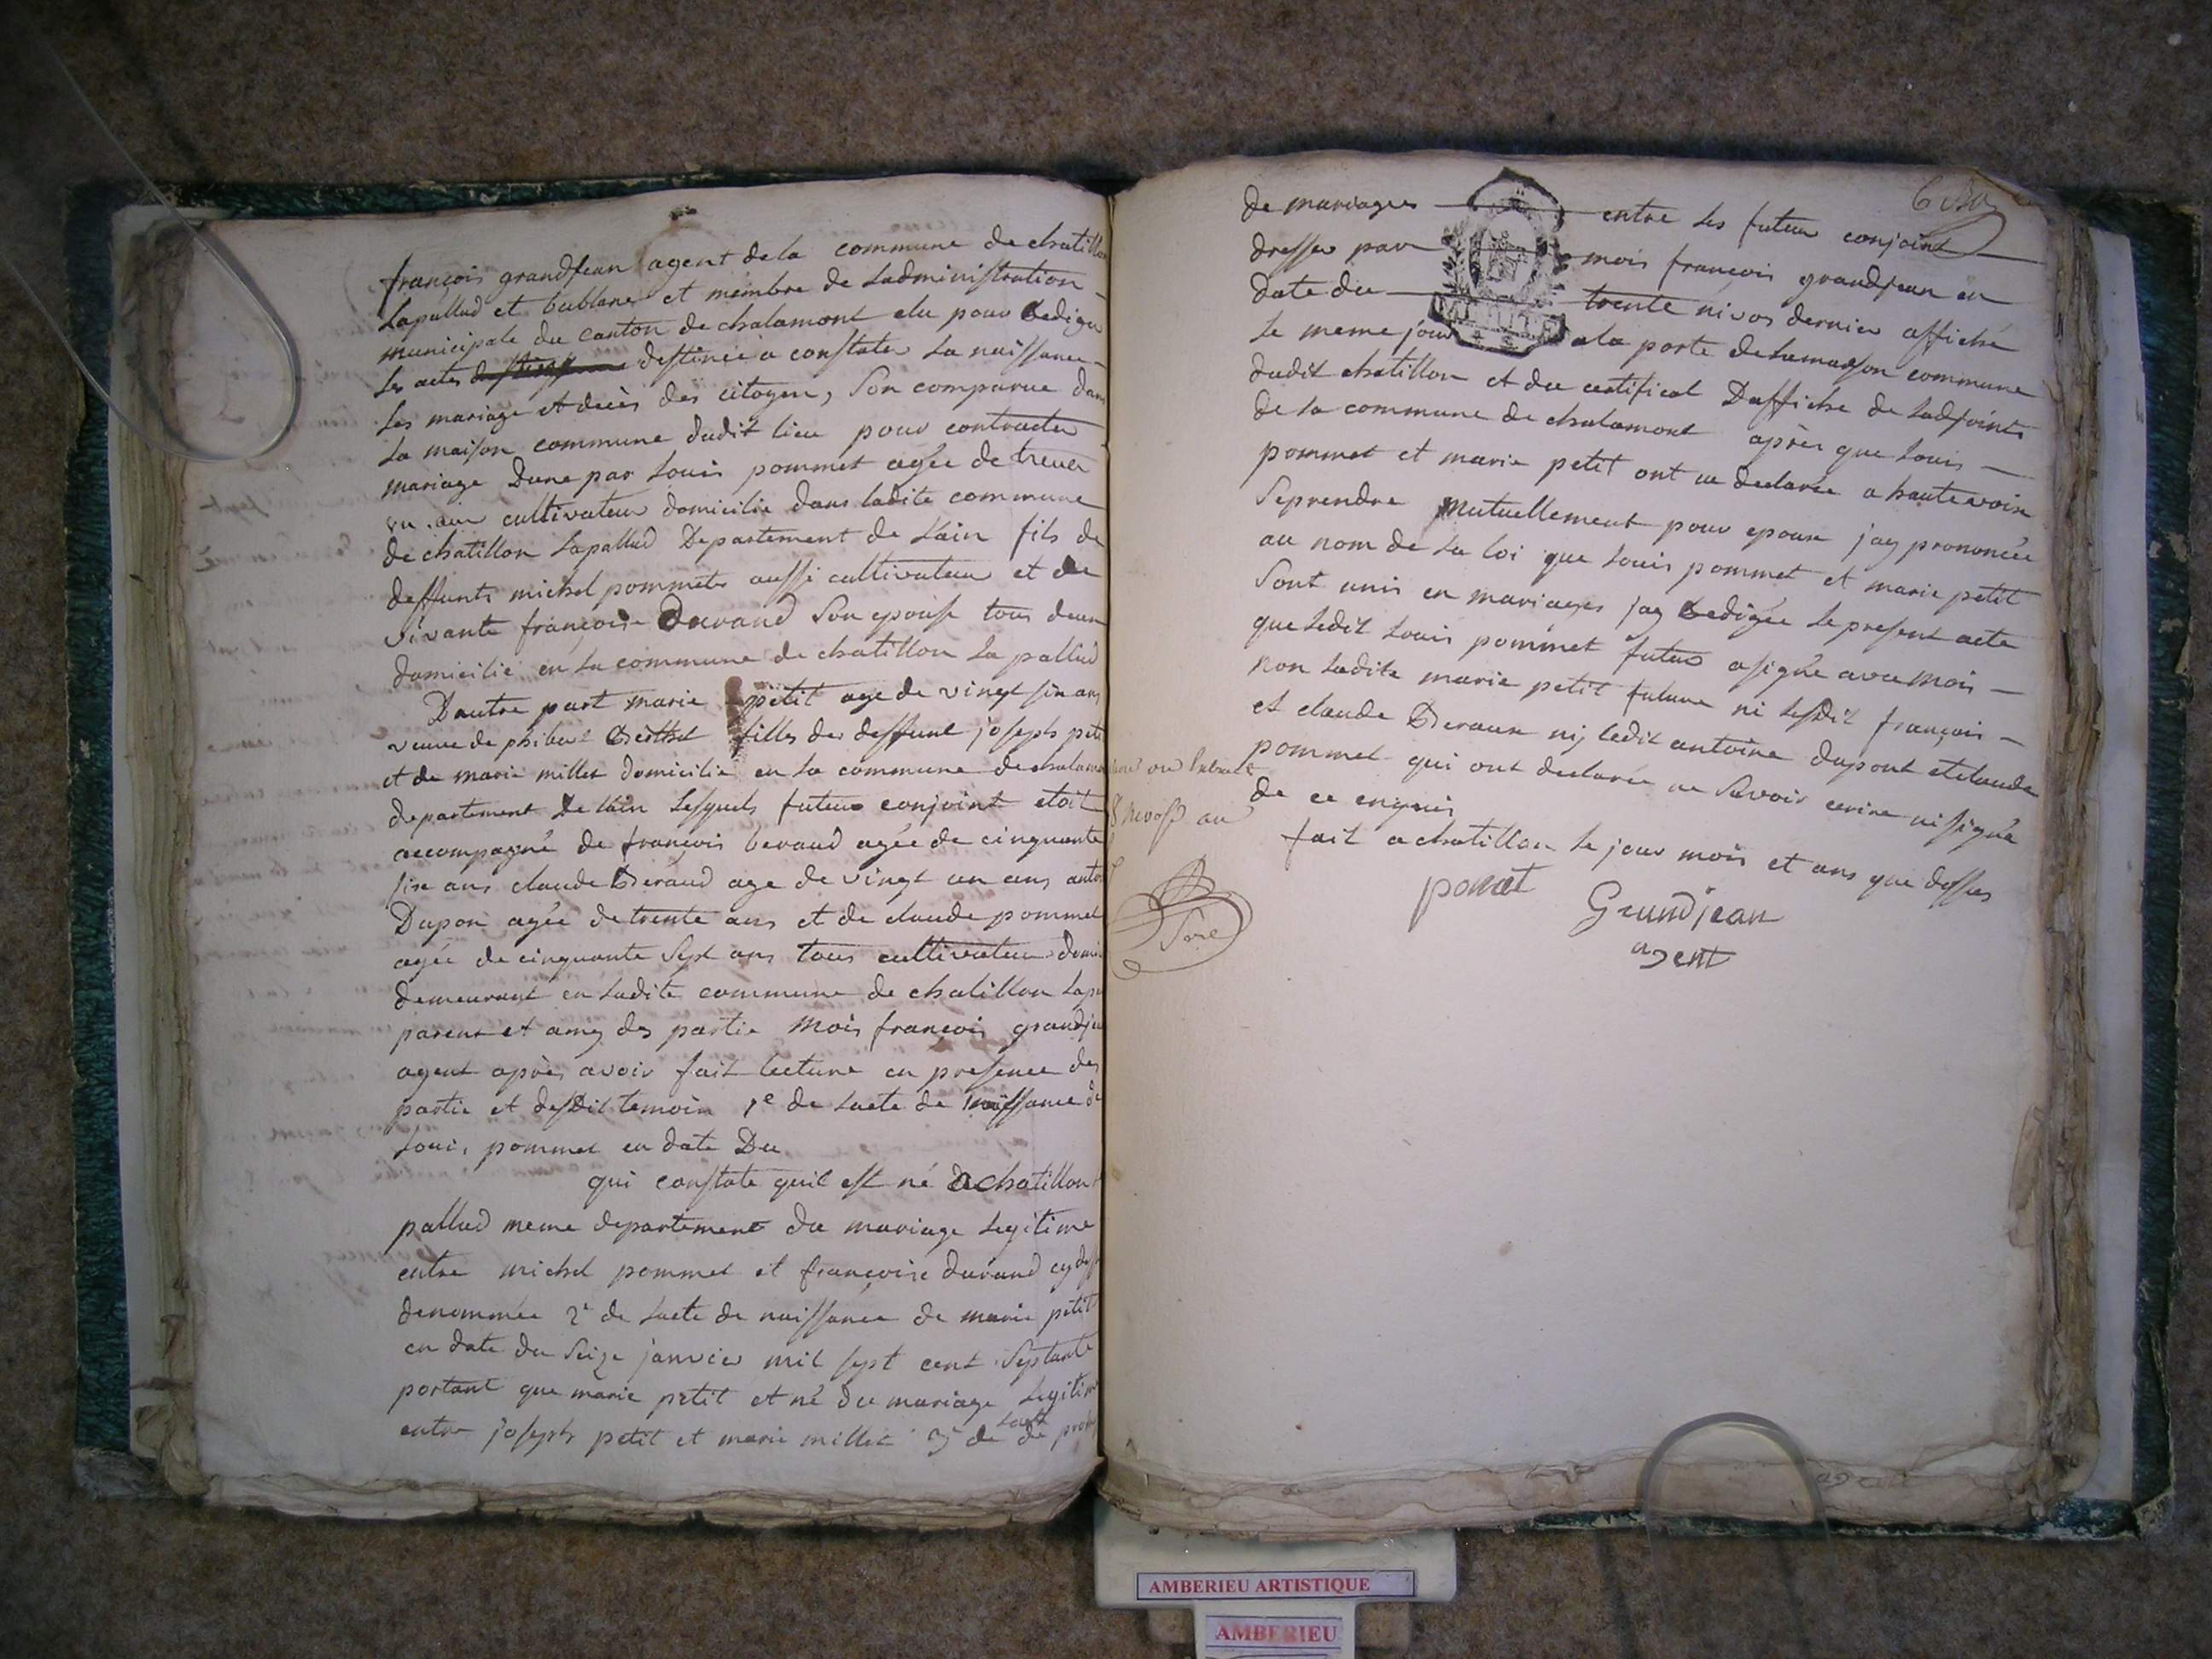 françois grandjean agent de la commune de chatillon
Lapallud et bublane et membre de Ladministration
municipale du canton de chalamont elu pour Redigér
Les actes destinée a constater La naissance
Les mariage et decès des citoyen, Son comparue dans
La maison commune dudit lieu pour contracter
mariage Dune par Louis pommet agée de trente
un ans cultivateur domicilie dans ladite commune
de chatillon Lapallud Departement de Lain fils de
deffunts michel pommet aussi cultivateur et de
vivante françoise Durand Son epouse tous deux
domicilié en La commune de chatillon La pallud
Dautre part marie petit age de vingt six ans
veuve de philibert Berthet filles de deffunt joseph petit
et de marie millet domicilie en La commune de chalamont
departement De lain Lesquels futeur conjoint etoit
accompagné de françois beraud agée de cinquante
six ans claude Beraud age de vingt un ans
Dupon agée de trente ans et de claude pommet
agée de cinquante Sept ans tous cultivateur
demeurant en Ladite commune de chatillon
parent et amy des partie mois françois grandjean
agent après avoir fait lecture en presence des
partie et desdit temoin 1e de Lacte de naissance de
Louis pommet en date Du
qui constate quil est né a chatillon
pallud meme departement du mariage Legitime
entre michel pommet et françoise durand
denommée 2e de Lacte de naissance de marie petit
en date du Seize janvier mil sept cent Septante
portant que marie petit et né du mariage Legitime
entre joseph petit et marie millet 3e de Lacte de
6
de mariages entre Les futeur conjoint
dresser par mois françois grandjean en
date du trente nivos dernier affiché
Le meme jour a la porte de Lamaison commune
dudit chatillon et du certificat Daffiche de Ladjoint
de La commune de chalamont après que Louis
pommet et marie petit ont ue declarée a hautevoix
Seprendre Mutuellement pour epoux jay prononcée
au nom de La loi que Louis pommet et marie petit
Sont unis en mariages jay Redigée Le present acte
que Ledit Louis pommet futur a signée avec mois
non Ladite marie petit future ni Lesdit françois
et claude Beraux nij ledit antoine dupont et claude
pommet qui ont declarée ne Savoir ecrire ni signé
de ce enquis
fait a chatillon Le jour mois et ans que dessus
pomet Grandjean
agent